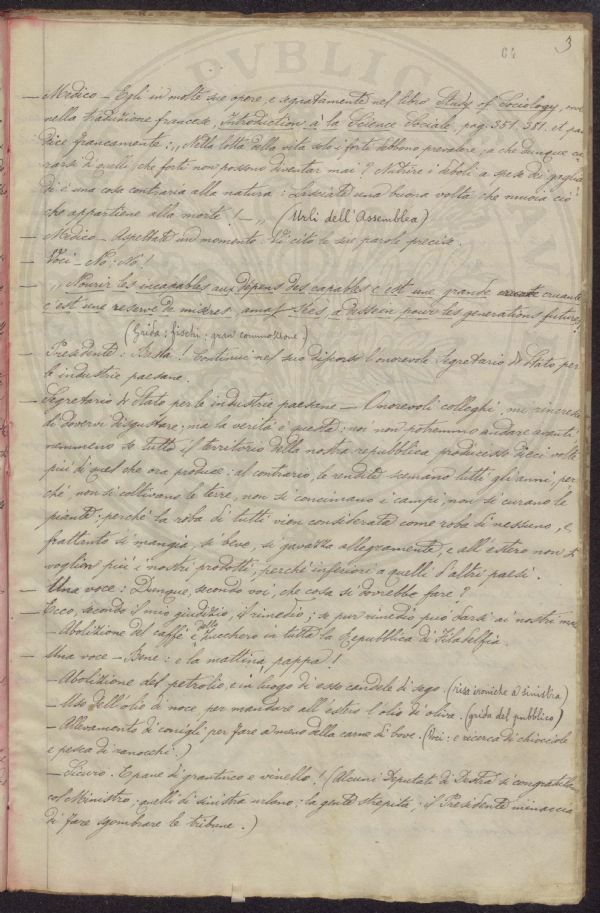 64 3
— Medico — Egli in molte sue opere, e segnatamente nel libro Study of Sociology, ove
nella traduzione francese, Introduction à la Science Sociale, pag. 381. 381. et
dice francamente: „ Nella lotta della vita solo i forti debbono prevalere; a che dunque cu
rarsi di quelli che forti non possono diventar mai? Nutrire i deboli a spese dei gagliar
di è una cosa contraria alla natura: lasciate una buona volta che muoia ciò
che appartiene alla morte! — „ (Urli dell'Assemblea)
— Medico — Aspettate un momento. Vi cito le sue parole precise.
— Voci — No: No!
— „ Nourir les incapables aux dépens des capables c'est une grande cruauté
c'est une reserve de misères, à dessein pour les generations future!
(Grida: fischi: gran commozione)
— Presidente: Basta! Continui nel suo discorso l'onorevole Segretario di Stato per
le industrie paesane.
— Segretario di Stato per le industrie paesane — Onorevoli colleghi, mi rincresce
di dovervi disgustare; ma la verità è questa: noi non potremmo andare avanti,
nemmeno se tutto il territorio della nostra repubblica producesse dieci volte
più di quel che ora produce: al contrario, le rendite scemano tutti gli anni, per
ché, non si coltivano le terre, non si concimano i campi, non si curano le
piante; perché la roba di tutti vien considerata come roba di nessuno, e,
frattanto si mangia, si beve, si gavazza allegramente, e all'estero non si
voglion più i nostri prodotti, perché inferiori a quelli d'altri paesi.
— Una voce: Dunque, secondo voi, che cosa si dovrebbe fare?
— Ecco, secondo il mio giudizio, il rimedio; se pur rimedio può darsi ai nostri ma
— Abolizione del caffè e dello zucchero in tutta la Repubblica di Filadelfia.
— Una voce — Bene: e la mattina, pappa!
— Abolizione del petrolio, e in luogo di esso candele di sego. (risa ironiche a sinistra)
— Uso dell'olio di noce per mandare all'estero l'olio di olive. (grida del pubblico)
— Allevamento di conigli per fare a meno della carne di bove. (Voci: e ricerca di chiocciole
e pesca di ranocchi.)
— Sicuro. E pane di granturco e vinello! (Alcuni Deputati di Destra si congratulan
col Ministro; quelli di sinistra urlano: la gente strepita; il Presidente minaccia
di fare sgombrare le tribune.)